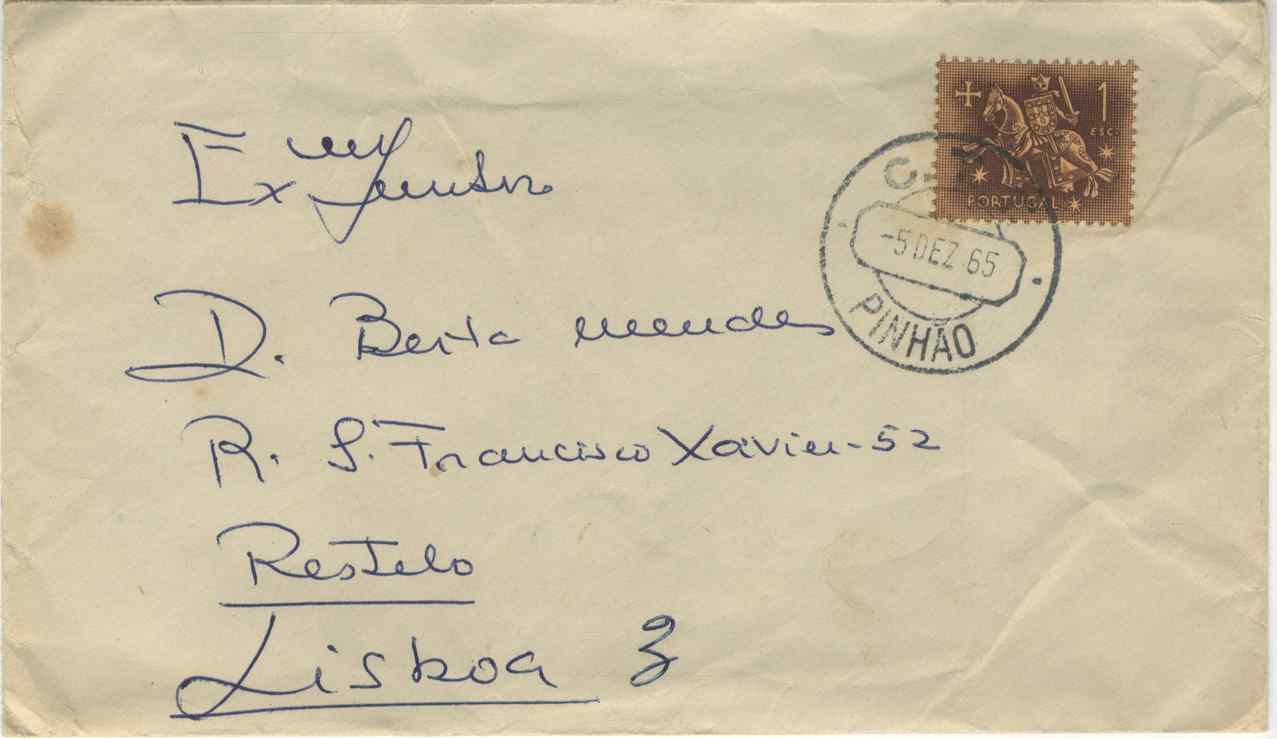 1
ESC.
PORTUGAL
C.T.T.
-5 DEZ 65
PINHÃO
Ex ma Senhora
D. Berta Mendes
R. S. Francisco Xavier-52
Restelo
Lisboa 3